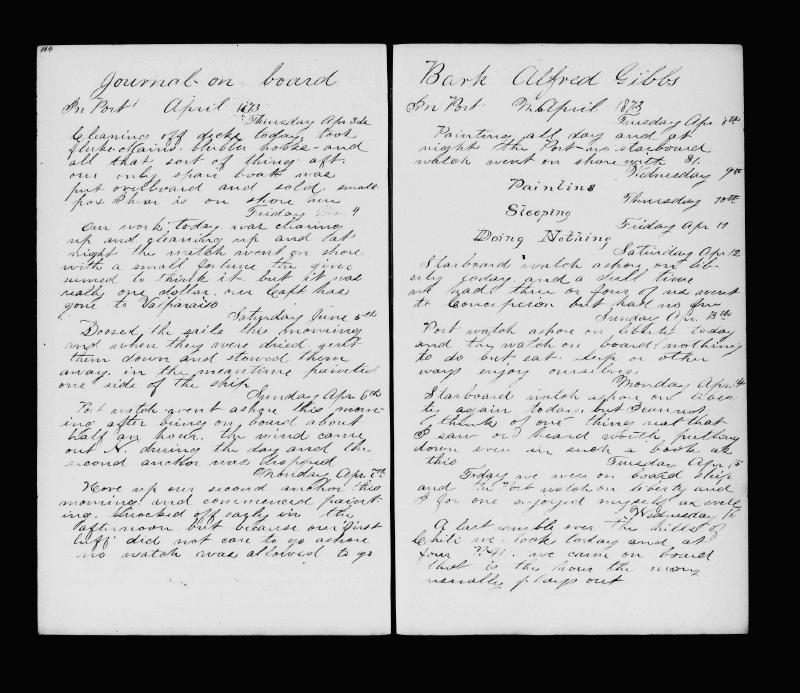 164
Journal on board
In Port April 1873
Thursday Apr 3de
Cleaning off decks today took
fluke chains blubber hooks and
all that sort of thing aft.
our only spare boat was
put overboard and sold. small
pox is on shore
Friday 4
Our work today was cleaning
up and cleaning up and at
night the watch went on shore
with a small fortune the giver
seemed to think it. but it was
really one dollar. our Capt has
gone to Valparaiso
Saturday June 5th
Loosed the sails this morning
and when they were dried sent
them down and stowed them
away. in the meantime painted
one side of the ship
Sunday Apr 6th
Port watch went ashore this morn-
ing after being on board about
half an hour. the wind came
out N. during the day and the
second anchor was dropped
Monday Apr 7th
Hove up our second anchor this
morning and commenced paint-
ing. knocked off early in the
afternoon but because our first
luff did not care to go ashore
no watch was allowed to go
Bark Alfred Gibbs
In Port April 1873
Tuesday Apr 8th
Painting all day and at
night the Port starboard
watch went on shore with $1.
Wednesday 9th
Painting
Thursday 10th
Sleeping
Friday Apr 11
Doing Nothing
Saturday Apr 12
Starboard watch ashore on lib-
erty today and a dull time
we had three or four of us went
to Concepcion but had no fun
Sunday Apr. 13th
Port watch ashore on liberty today
and the watch on board nothing
to do but eat. sleep or other
ways enjoy ourselves.
Monday Apr. 14
Starboard watch ashore on liber-
ty again today. but I can not
think of one thing that
I saw or heard worth putting
down even in such a book as
this
Tuesday Apr. 15
Today we were on board ship
and the Port watch on liberty and
I for one enjoyed myself as well
Wednesday
A last ramble over the hills of
Chili we took today and at
four P.M. we came on board
that is the hour the money
usually plays out